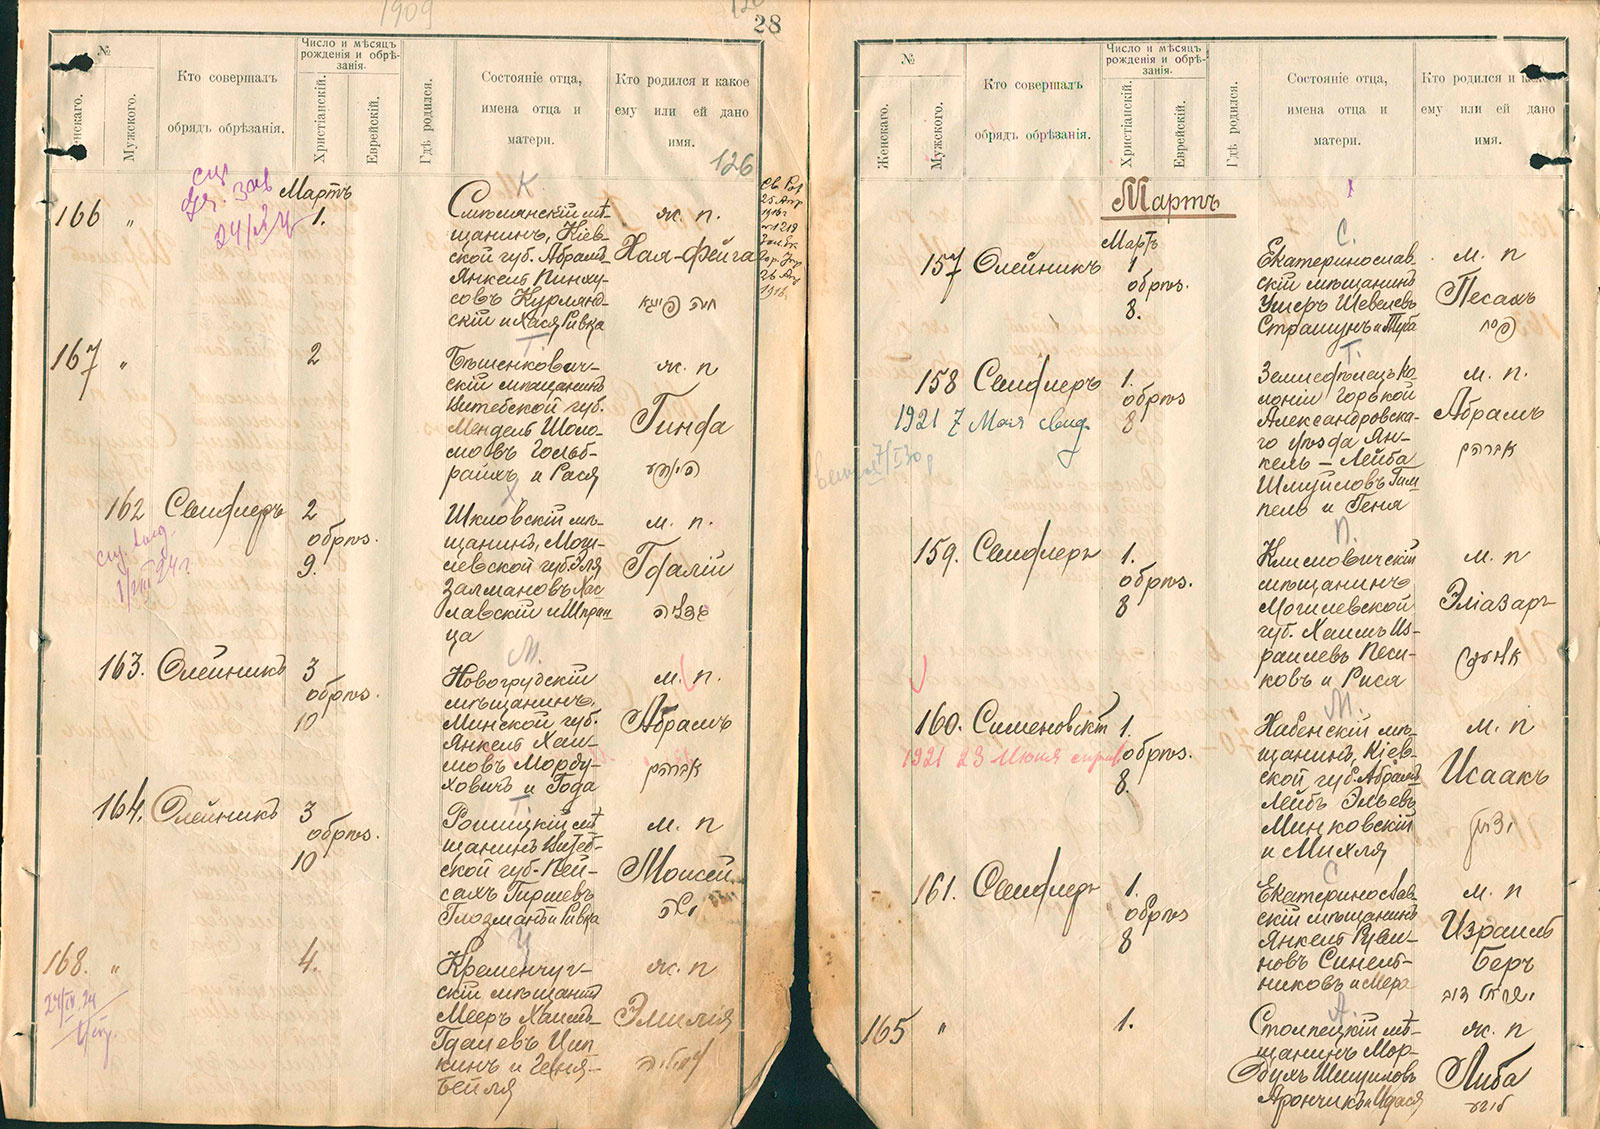 1909
28
№
Женскаго.
Мужского.
Кто совершалъ
обрядъ обрѣзанія.
Число и мѣсяцъ
рожденія и обрѣ-
занія.
Христіанскій.
Еврейскій.
Гдѣ родился.
Состояніе отца,
имена отца и
матери.
Кто родился и какое
ему или ей дано
имя.
126
Мартъ
166 "
1.
щанинъ, Кіев-
ской губ. Абрамъ
Янкель Пинху-
совъ Курлянд-
скій и Хася Ривка
ж. п.
Хая-Фейга
חיה פייגא
24/IX 24
167 "
2
Бѣшенкович-
скій мѣщанинъ
Витебской губ.
Мендель Шоло-
мовъ Гольб-
райхъ и Рася
ж. п
Гинда
162 Сандлеръ
2
обрѣз.
9.
Шкловскій мѣ-
щанинъ, Моги-
левской губ. Эля
Залмановъ Хас-
лавскій и Шприн-
ца
м. п.
Гдалій
גדליה
1/VIII 24 г.
163. Олейникъ
3
обрѣз.
10
М.
Новогрудскій
мѣщанинъ,
Минской губ.
Янкель Хаи-
мовъ Морду-
ховичъ и Года
м. п.
Абрамъ
אברהם
164. Олейникъ
3
обрѣз.
10
щанинъ Витеб-
ской губ. Пей-
сахъ Гиршевъ
Глозманъ и Ривка
м. п
Моисей
משה
168. "
4.
Ц
Кременчуг-
скій мѣщанинъ
Мееръ Хаимъ
Гдалевъ Цип-
кинъ и Геня-
Бейля
ж. п
Эмилія
24/IV 24
№
Женскаго.
Мужского.
Кто совершалъ
обрядъ обрѣзанія.
Число и мѣсяцъ
рожденія и обрѣ-
занія.
Христіанскій.
Еврейскій.
Гдѣ родился.
Состояніе отца,
имена отца и
матери.
Кто родился и какое
ему или ей дано
имя.
Мартъ
157 Олейникъ
Мартъ
1
обрѣз.
8.
С.
Екатеринослав-
скій мѣщанинъ
Ушеръ Шевелевъ
Страшунъ и Туба
м. п
Песахъ
פסח
158 Сандлеръ
1.
обрѣз
8
Г.
Земледѣлецъ ко-
лоніи Горькой
Александровска-
го уѣзда Ян-
кель-Лейба
Шмуйловъ Гим-
пель и Геня
м. п.
Абрамъ
אברהם
1921 7 Мая
159. Сандлеръ
1.
обрѣз.
8
П.
Климовичскій
мѣщанинъ
Могилевской
губ. Хаимъ Из-
раилевъ Песи-
ковъ и Рися
м. п
Эліазаръ
160. Сименовскій
1.
обрѣз.
8.
М.
щанинъ, Кіев-
ской губ. Абрамъ
Лейбъ Эльевъ
Минковскій
и Михля
м. п
Исаакъ
יצחק
1921 23 Июня справ
161. Сандлеръ
1.
обрѣз
8
С
Екатеринослав-
скій мѣщанинъ
Янкель Руви-
новъ Синель-
никовъ и Мера
м. п
Израиль
Беръ
ישראל דוב
165 "
1.
А.
Столпецкій мѣ-
щанинъ Мор-
духъ Шмуиловъ
Арончикъ и Идася
ж. п
Либа
ליבע